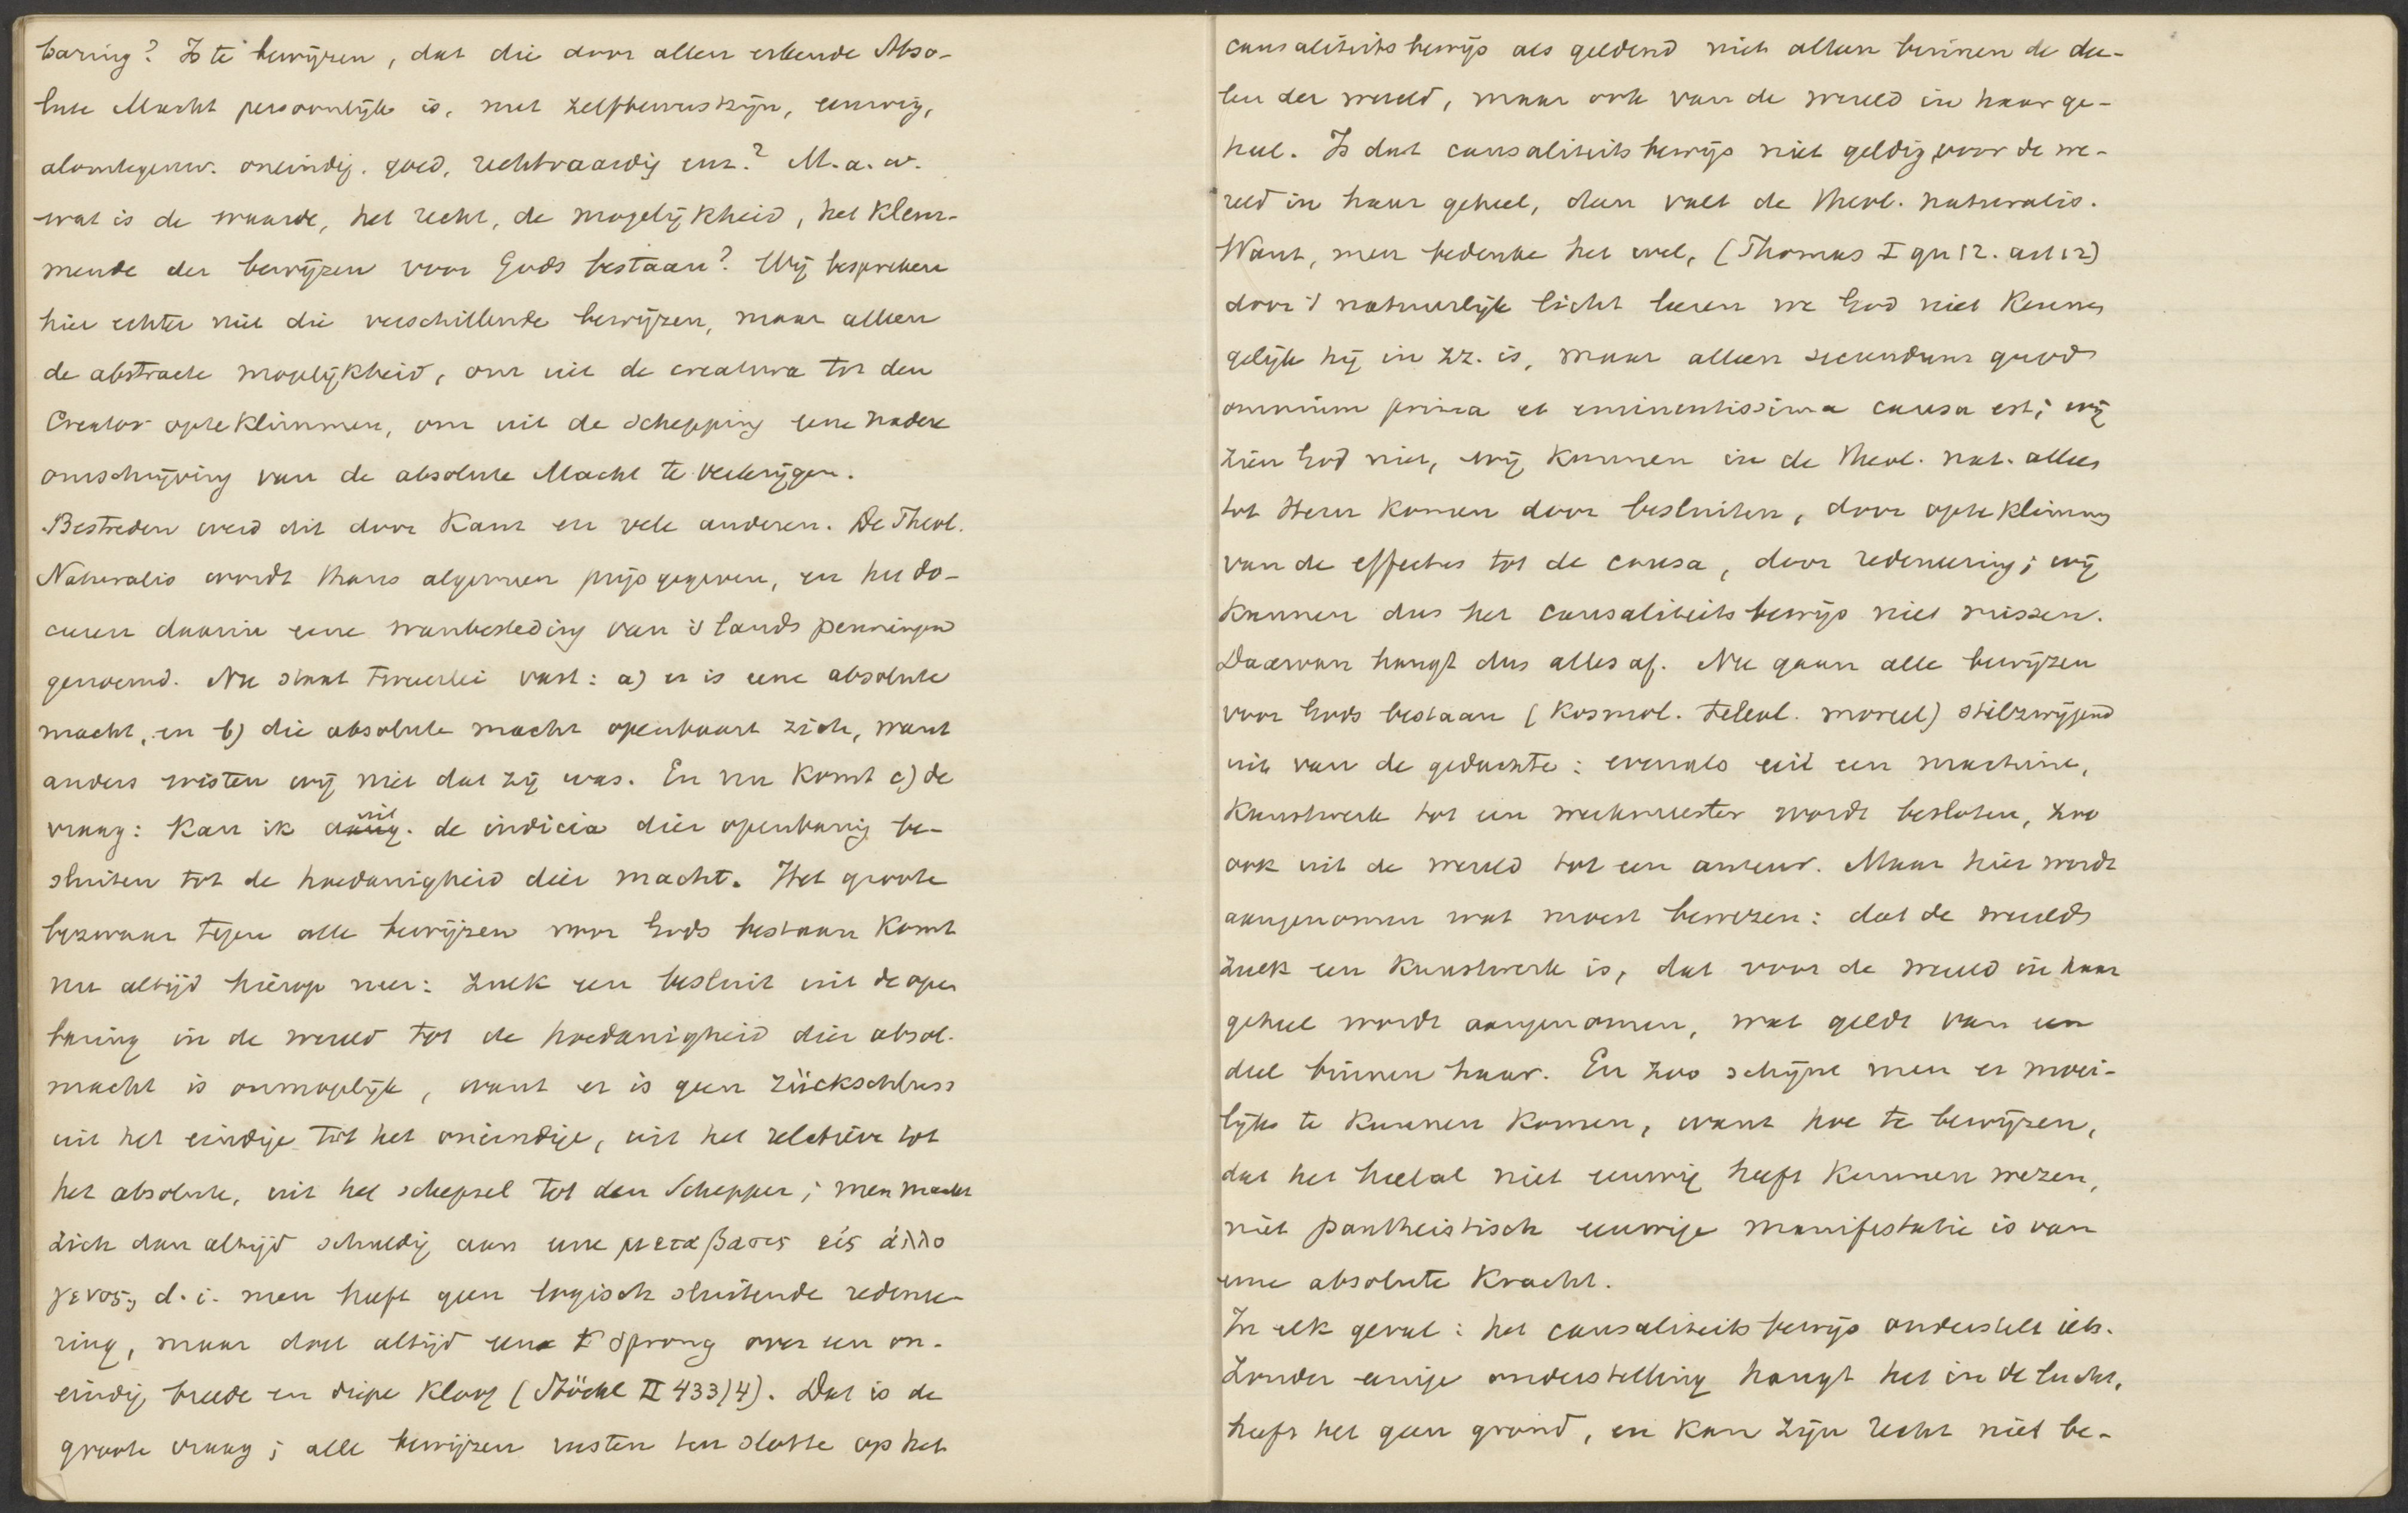 baring? Is te bewijzen, dat die door allen erkende Abso-
lute Macht persoonlijk is, met zelfbewustzijn, eeuwig,
alomtegenw. oneindig. goed, rechtvaardig enz.? M.a.w.
wat is de waarde, het recht, de mogelijkheid, het klem-
mende der bewijzen voor Gods bestaan? Wij bespreken
hier echter niet die verschillende bewijzen, maar alleen
de abstracte mogelijkheid, om uit de creatura tot den
Creator opteklimmen, om uit de schepping eene nadere
omschrijving van de absolute Macht te verkrijgen.
Bestreden werd dit door Kant en vele anderen. De Theol.
Naturalis wordt thans algemeen prijsgegeven, en het do-
ceren daarin eene wanbesteding van 's lands penningen
genoemd. Nu staat tweeerlei vast: a) er is eene absolute
macht, en b) die absolute macht openbaart zich, want
anders wisten wij niet dat zij was. En nu komt c) de
vraag: kan ik uit de indicia dier openbaring be-
sluiten tot de hoedanigheid dier macht. Het groote
bezwaar tegen alle bewijzen voor Gods bestaan komt
nu altijd hierop neer: zulk een besluit uit de open
baring in de wereld tot de hoedanigheid dier absol.
macht is onmogelijk, want er is geen Rückschluss
uit het eindige tot het oneindige, uit het relatieve tot
het absolute, uit het schepsel tot den Schepper; men maakt
zich dan altijd schuldig aan eene μεταβασις εἰς ἀλλο
γενος, d.i. men heeft geen logisch sluitende redenee-
ring, maar doet altijd een sprong over een on-
eindig breede en diepe kloof (Stöckl II 433/4). Dat is de
groote vraag; alle bewijzen rusten ten slotte op het
causaliteitsbewijs als geldend niet alleen binnen de dee-
len der wereld, maar ook van de wereld in haar ge-
heel. Is dat causaliteitsbewijs niet geldig voor de we-
reld in haar geheel, dan valt de Theol. naturalis.
Want, men bedenke het wel, (Thomas I qu 12. art 12)
door 't natuurlijk licht leeren we God niet kennen
gelijk hij in zz. is, maar alleen secundum quod
omnium prima et eminentissima causa est; wij
zien God niet, wij kunnen in de Theol. nat. alleen
tot Hem komen door besluiten, door opteklimmen
van de effectus tot de causa, door redeneering; wij
kunnen dus het causaliteitsbewijs niet missen.
Daarvan hangt dus alles af. Nu gaan alle bewijzen
voor Gods bestaan (kosmol. teleol. moreel) stilzwijgend
uit van de gedachte: evenals uit een machine,
kunstwerk tot een werkmeester wordt besloten, zoo
ook uit de wereld tot een auteur. Maar hier wordt
aangenomen wat moest bewezen: dat de wereld
zulk een kunstwerk is, dat voor de wereld in haar
geheel wordt aangenomen, wat geldt van een
deel binnen haar. En zoo schijnt men er moei-
lijk te kunnen komen, want hoe te bewijzen,
dat het heelal niet eeuwig heeft kunnen wezen,
niet pantheistisch eeuwige manifestatie is van
eene absolute kracht.
In elk geval: het causaliteitsbewijs onderstelt iets.
Zonder eenige onderstelling hangt het in de lucht,
heeft het geen grond, en kan zijn recht niet be-